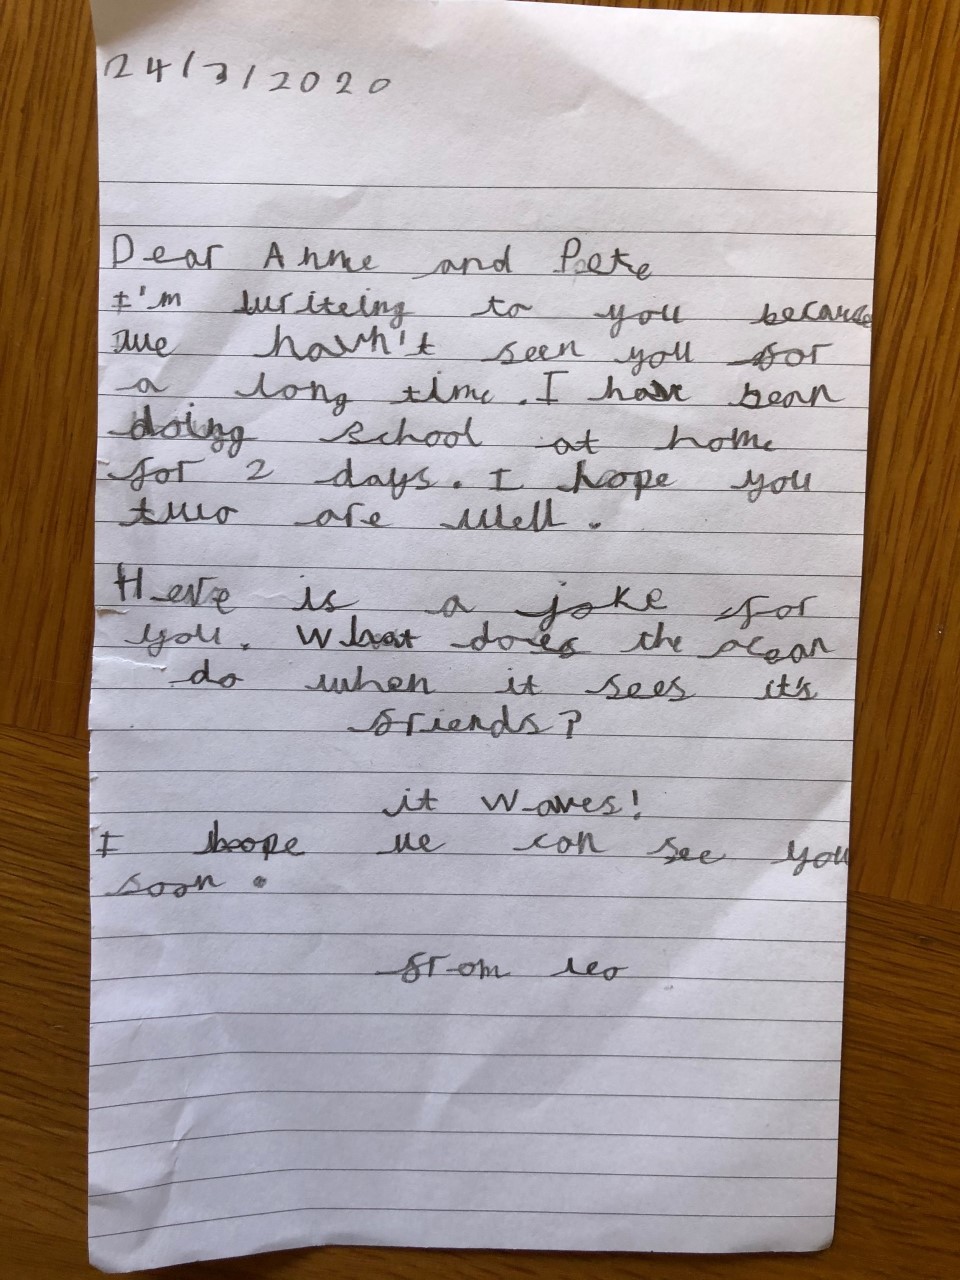 24/3/2020
Dear Anne and Pete
I'm writeing to you because
we havn't seen you for
a long time. I have bean
doing school at home
for 2 days. I hope you
two are well.
Here is a joke for
you. What does the ocean
do when it sees it's
friends?
it waves!
I hope we can see you
soon.
from leo